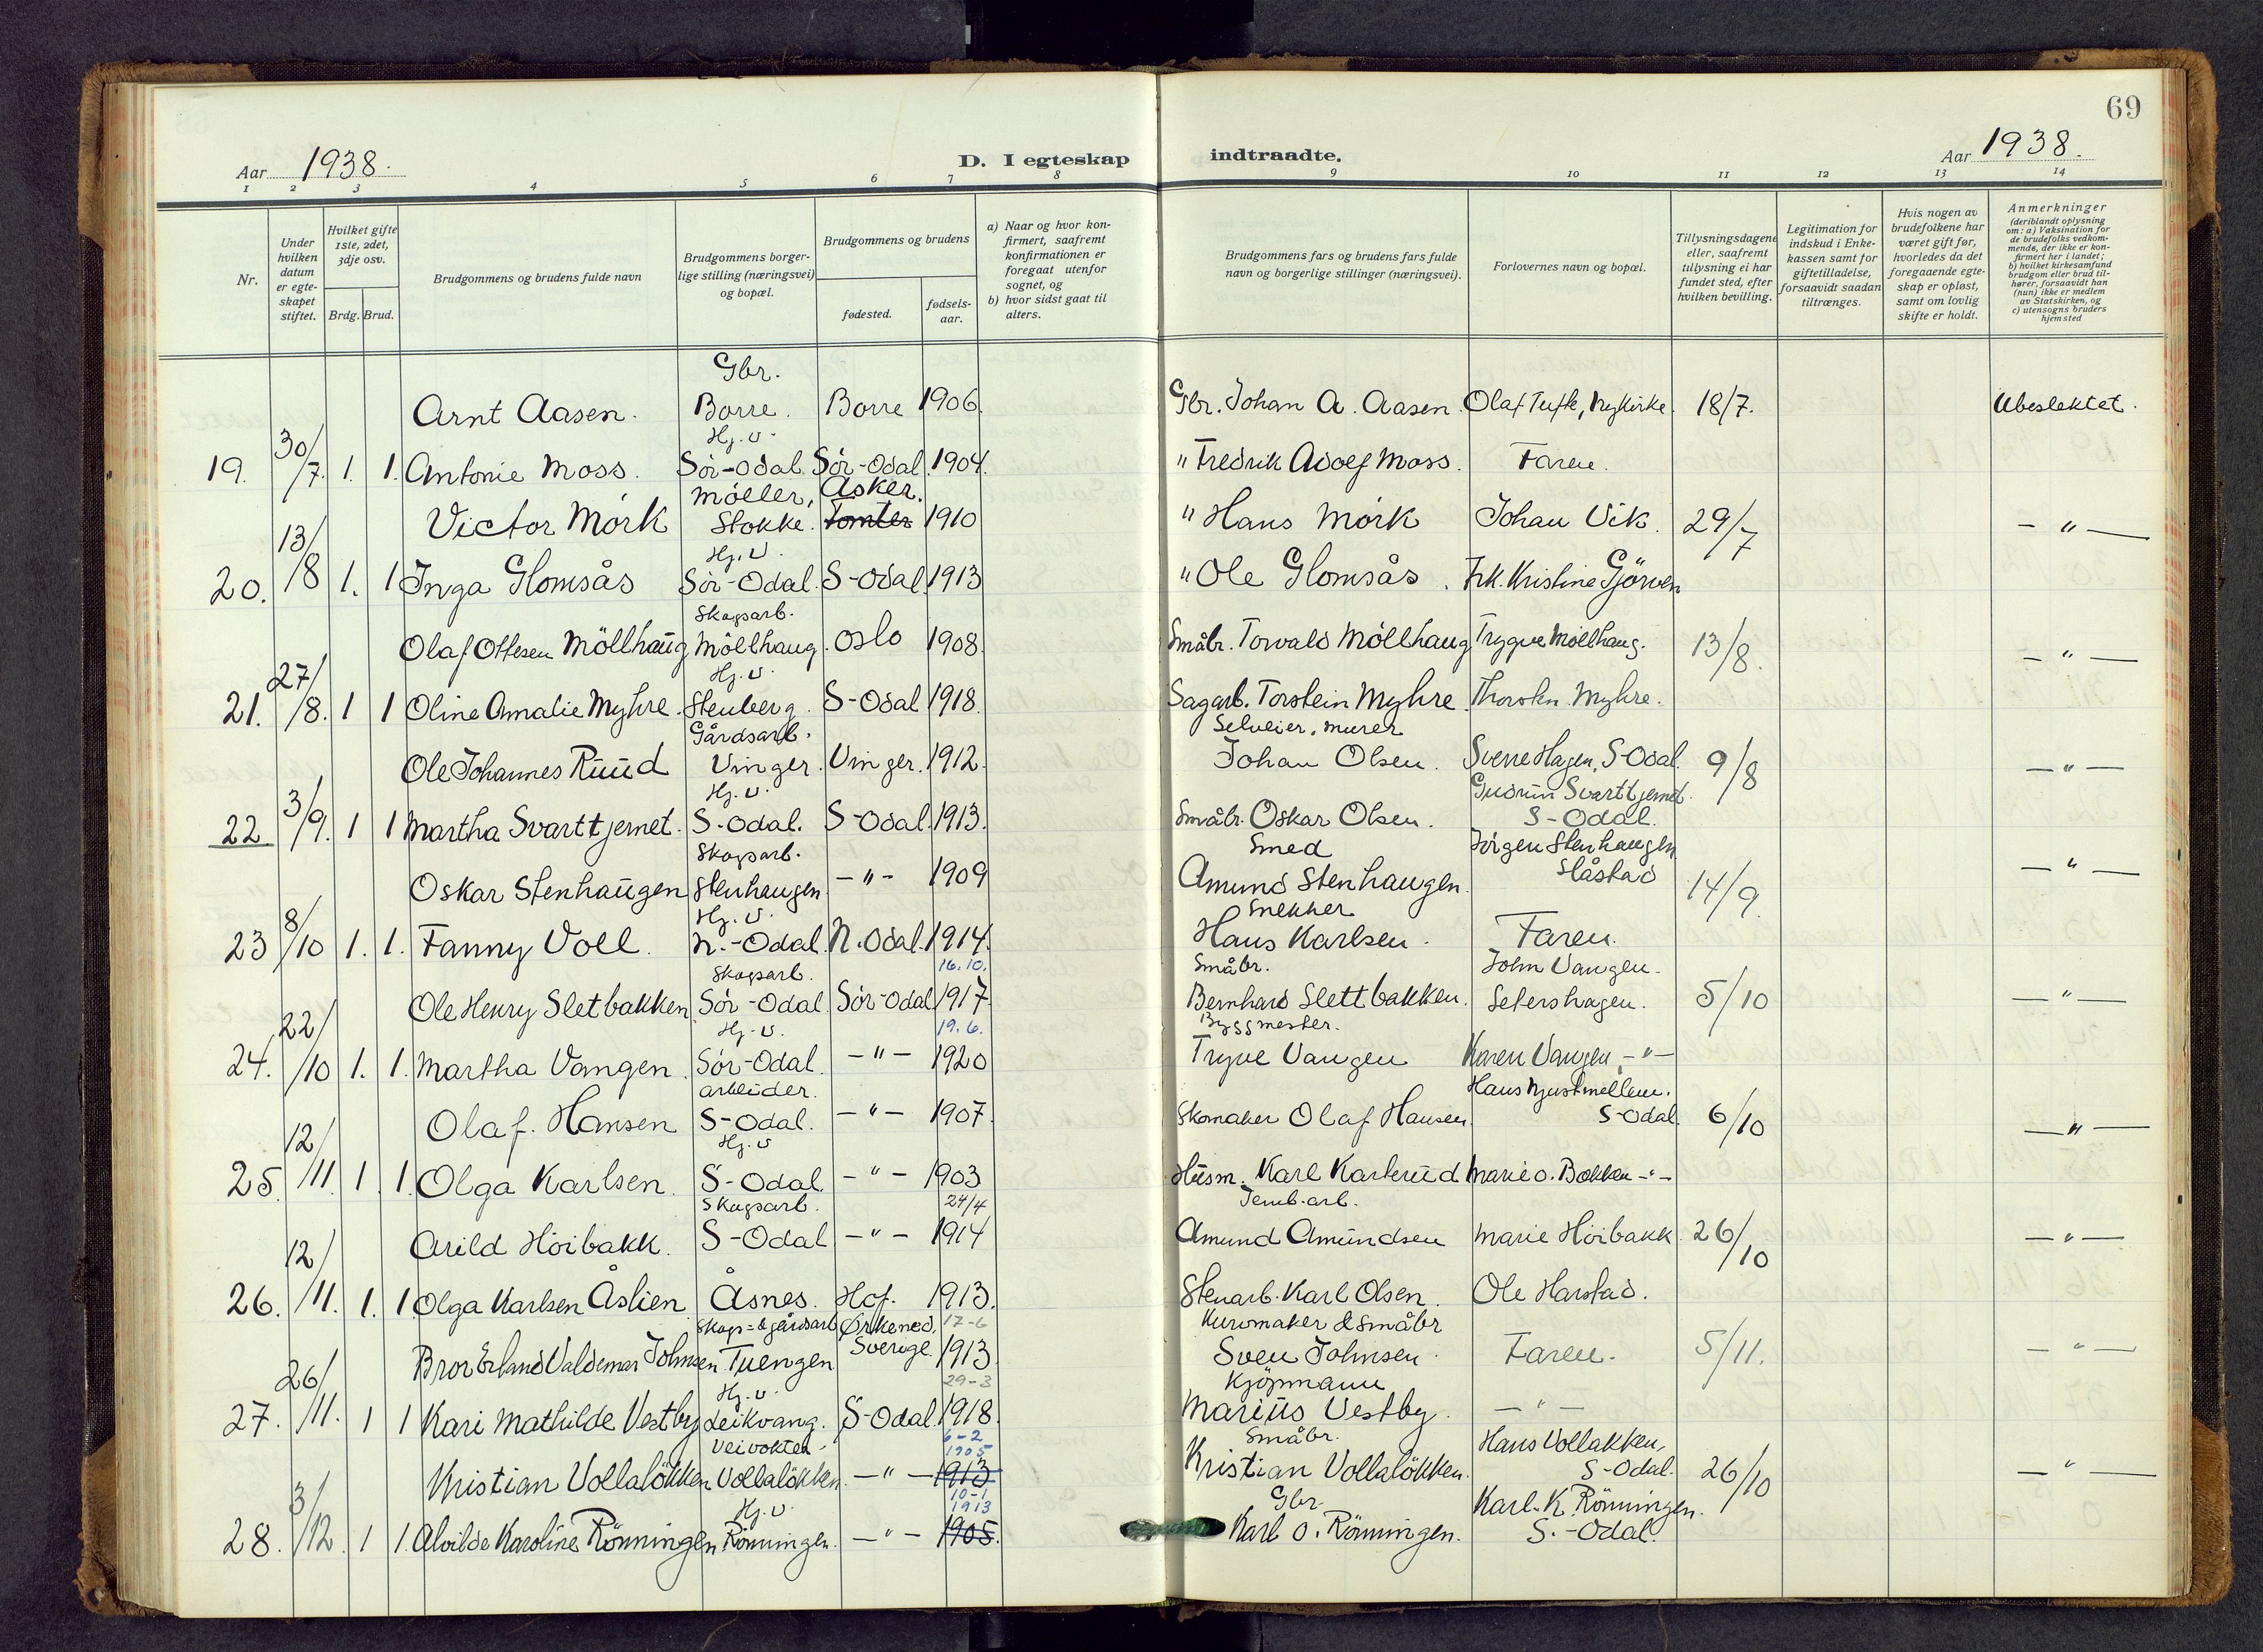 69
Aar 1938.
D. I egteskap indtraadte.
Aar 1938.
1 2 3 4 5 6 7 8 9 10 11 12 13 14
Nr.
Under hvilken datum er egteskapet stiftet.
Hvilket gifte 1ste, 2det, 3dje osv.
Brdg. Brud.
Brudgommens og brudens fulde navn
Brudgommens borgerlige stilling (næringsvei) og bopæl.
Brudgommens og brudens
fødested.
fødselsaar.
a) Naar og hvor konfirmert, saafremt konfirmationen er foregaat utenfor sognet, og
b) hvor sidst gaat til alters.
Brudgommens fars og brudens fars fulde navn og borgerlige stillinger (næringsvei).
Forlovernes navn og bopæl.
Tillysningsdagene eller, saafremt tillysning ei har fundet sted, efter hvilken bevilling.
Legitimation for indskud i Enkekassen samt for giftetilladelse, forsaavidt saadan tiltrænges.
Hvis nogen av brudefolkene har været gift før, hvorledes da det foregaaende egteskap er opløst, samt om lovlig skifte er holdt.
Anmerkninger
(deriblandt oplysning om: a) Vaksination for de brudefolks vedkommende, der ikke er konfirmert her i landet;
b) hvilket kirkesamfund brudgom eller brud tilhører, forsaavidt han (hun) ikke er medlem av Statskirken, og
c) utensogns bruders hjemsted
Gbr.
Arnt Aasen. Borre. Borre 1906. Gbr. Johan A. Aasen. Olaf Tufte, Nykirke. 18/7. Ubeslektet.
Hj. v.
19. 30/7. 1. 1. Antonie Moss. Sör-Odal. Sör-Odal. 1904. " Fredrik Adolf Moss. Faren.
Möller, Asker.
Victor Mörk Stokke. Tomter 1910 " Hans Mörk Johan Vik. 29/7 - " -
Hj. v.
20. 13/8 1. 1 Inga Glomsås Sör-Odal. S-Odal. 1913 " Ole Glomsås. Frk. Kristine Gjörven
Skogsarb.
Olaf Ottesen Möllhaug Möllhaug. Oslo 1908. Småbr. Torvald Möllhaug Trygve Möllhaug. 13/8. - " -
Hj. v.
21. 27/8. 1 1 Oline Amalie Myhre. Stenberg. S-Odal 1918. Sagarb. Torstein Myhre. Thorsten Myhre.
Gårdsarb. Selveier, murer
Ole Johannes Ruud Vinger. Vinger. 1912. Johan Olsen. Sverre Hagen, S-Odal. 9/8 - " -
Hj. v. Gudrun Svarttjernet.
22. 3/9. 1 1 Martha Svarttjernet. S-Odal. S-Odal. 1913. Småbr. Oskar Olsen. S-Odal.
Skogsarb. Smed Jörgen Stenhaugen
Oskar Stenhaugen Stenhaugen. - " - 1909 Amund Stenhaugen. Slåstad 14/9. - " -
Hj. v. Snekker
23 8/10 1. 1. Fanny Voll. N.-Odal. N.Odal. 1914. Hans Karlsen. Faren.
Skogsarb. 16.10. Småbr. John Vangen.
Ole Henry Sletbakken Sör-Odal. Sör-Odal 1917 Bernhard Slettbakken. Setershagen. 5/10 - " -
Hj. v. 19.6. Byggmester.
24. 22/10 1. 1. Martha Vangen. Sör-Odal. - " - 1920 Trygve Vangen Karen Vangen, - " -
arbeider. Hans
Olaf. Hansen S-Odal. - " - 1907. Skomaker Olaf Hansen. S-Odal. 6/10 - " -
Hj. v
25. 12/11. 1. 1. Olga Karlsen. S-Odal. - " - 1903 Husm. Karl Karterud Marie O. Bakken - " -
Skogsarb. 24/4 Jernb.arb.
Arild Höibakk. S-Odal - " - 1914 Amund Amundsen Marie Höibakk. 26/10 - " -
26. 12/11. 1. 1. Olga Karlsen Åslien Åsnes. Hof. 1913. Stenarb. Karl Olsen. Ole Harstad.
Skogs=& gårdsarb Ørkened. 17-6 Kurvmaker & Småbr
Bror Erland Valdemar Johnsen. Tuengen Sverige. 1913 Sven Johnsen. Faren. 5/11. - " -
Hj. v. 29-3 Kjöpmann
27. 26/11. 1 1 Kari Mathilde Vestby Leikvang. S-Odal. 1918. Marius Vestby. - " -
Veivokter. 6-2 1905 Småbr. Hans Vollakken,
Kristian Vollalökken Vollalökken. - " - 1913 Kristian Vollalökken. S-Odal. 26/10 - " -
Hj. v. 10-1 1913 Gbr. Karl. K. Rönningen.
28. 3/12. 1 1. Alvilde Karoline Rönningen Rönningen. - " - 1905. Karl O. Rönningen. S.-Odal.